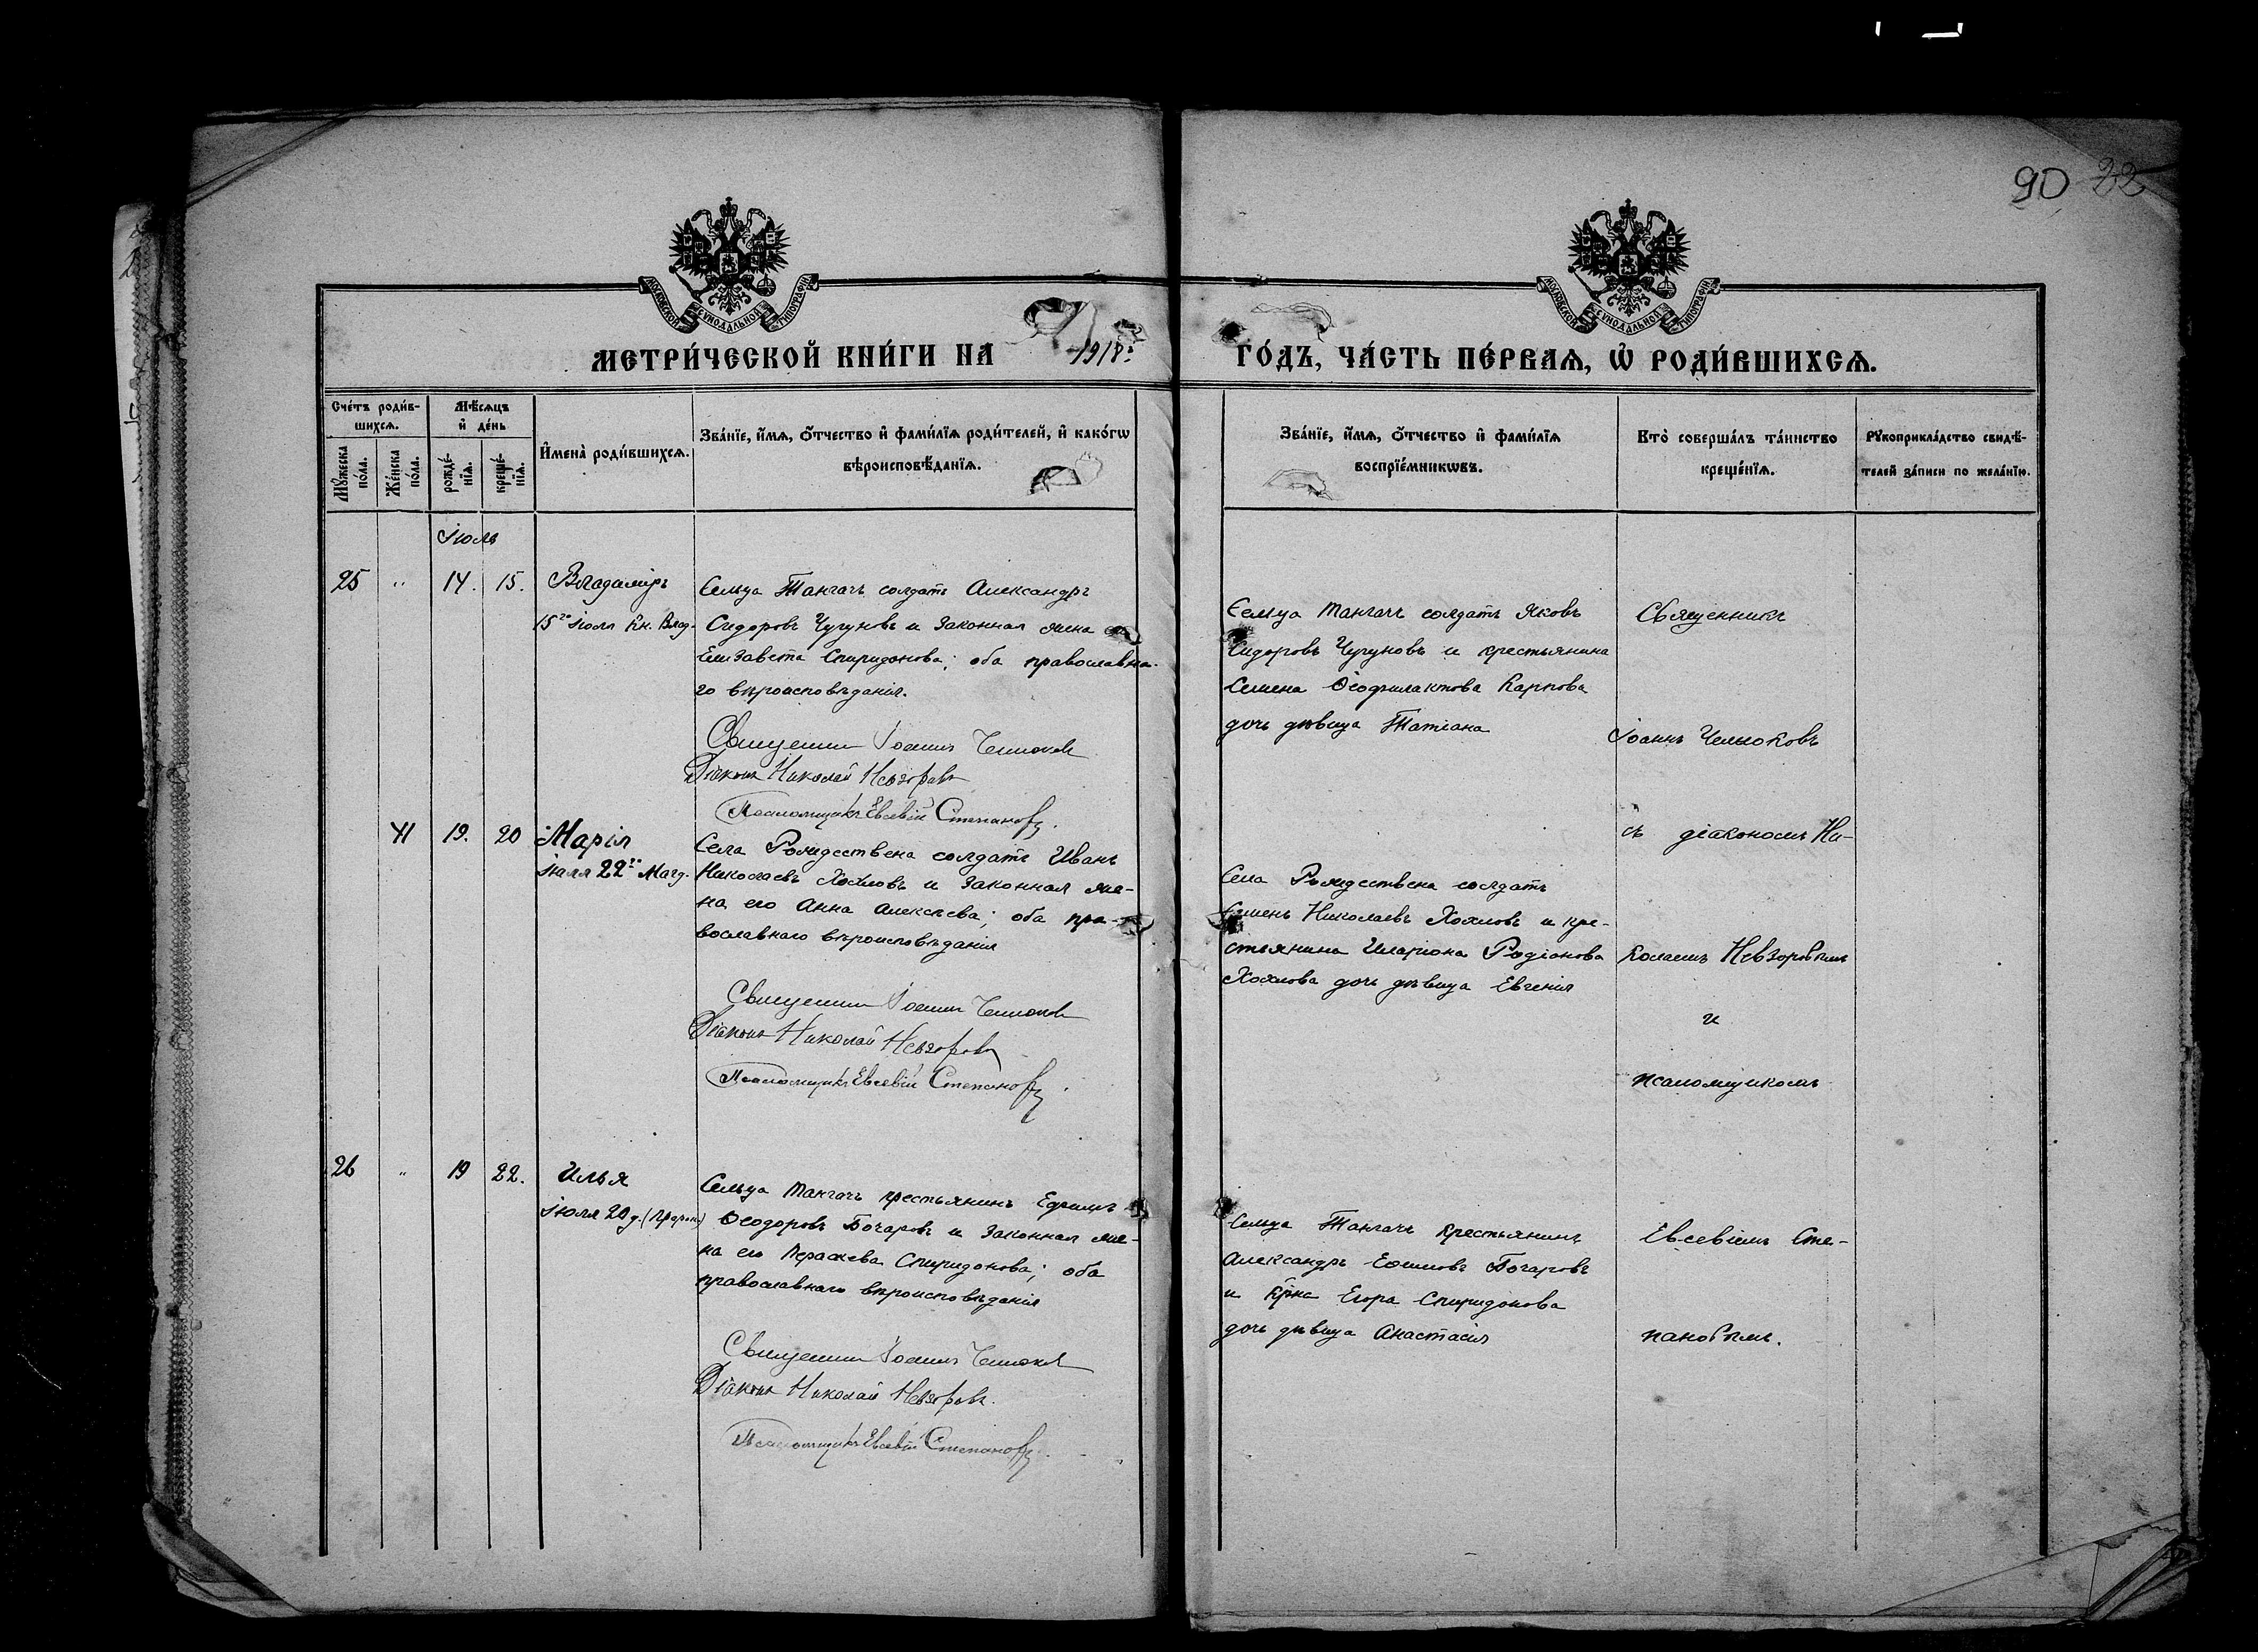 90 22
МОСКОВСКОЙ СѴНОДАЛЬНОЙ ТИПОГРАФІИ
МОСКОВСКОЙ СѴНОДАЛЬНОЙ ТИПОГРАФІИ
МЕТРИ́ЧЕСКОЙ КНИ́ГИ НА 1918 г. ГО́ДЪ, ЧА́СТЬ ПЕ́РВАѦ, Ѿ РОДИ́ВШИХСѦ.
Сче́тъ роди́в-
шихсѧ.
Мꙋ́жеска по́ла.
Же́нска по́ла.
Мѣ́сѧцъ
и҆ де́нь
рожде́-
нїѧ.
креще́-
нїѧ.
И҆мена̀ роди́вшихсѧ.
Зва́нїе, и҆́мѧ, ѻ҆́тчество и҆ фами́лїѧ роди́телей, и҆ како́гѡ
вѣроисповѣ́данїѧ.
Зва́нїе, и҆́мѧ, ѻ҆́тчество и҆ фами́лїѧ
воспрїе́мникѡвъ.
Кто̀ соверша́лъ та́инство
креще́нїѧ.
Рꙋкоприкла́дство свидѣ́-
телей за́писи по жела́нїю.
Іюль
25 " 14. 15. Владиміръ
15го іюля Кн. Влад.
Сельца Тангачъ солдатъ Александръ
Сидоровъ Чугуновъ и законная жена его
Елизавета Спиридонова; оба православна-
го вѣроисповѣданія.
Священникъ Іоаннъ Чельноковъ
Діаконъ Николай Невзоровъ
Псаломщикъ Евсевій Степановъ.
Сельца Тангачъ солдатъ Яковъ
Сидоровъ Чугуновъ и крестьянина
Семена Ѳеофилактова Карпова
дочь дѣвица Татіана
Священникъ
Іоаннъ Чельноковъ
съ діакономъ Ни-
колаемъ Невзоровымъ
и
псаломщикомъ
Евсевіемъ Сте-
пановымъ.
XI 19. 20 Марія
іюля 22го Магд.
Села Рождествена солдатъ Иванъ
Николаевъ Хохловъ и законная же-
на его Анна Алексѣева; оба пра-
вославнаго вѣроисповѣданія
Священникъ Іоаннъ Чельноковъ
Діаконъ Николай Невзоровъ
Псаломщикъ Евсевій Степановъ.
Села Рождествена солдатъ
Семенъ Николаевъ Хохловъ и кре-
стьянина Иларіона Родіонова
Хохлова дочь дѣвица Евгенія
26 " 19 22. Илья
іюля 20 д. (Пророк.)
Сельца Тангачъ крестьянинъ Ефимъ
Ѳеодоровъ Бочаровъ и законная же-
на его Параскева Спиридонова; оба
православнаго вѣроисповѣданія
Священникъ Іоаннъ Чельноковъ
Діаконъ Николай Невзоровъ.
Псаломщикъ Евсевій Степановъ.
Сельца Тангачъ крестьянинъ
Александръ Ефимовъ Бочаровъ
и крна Егора Спиридонова
дочь дѣвица Анастасія